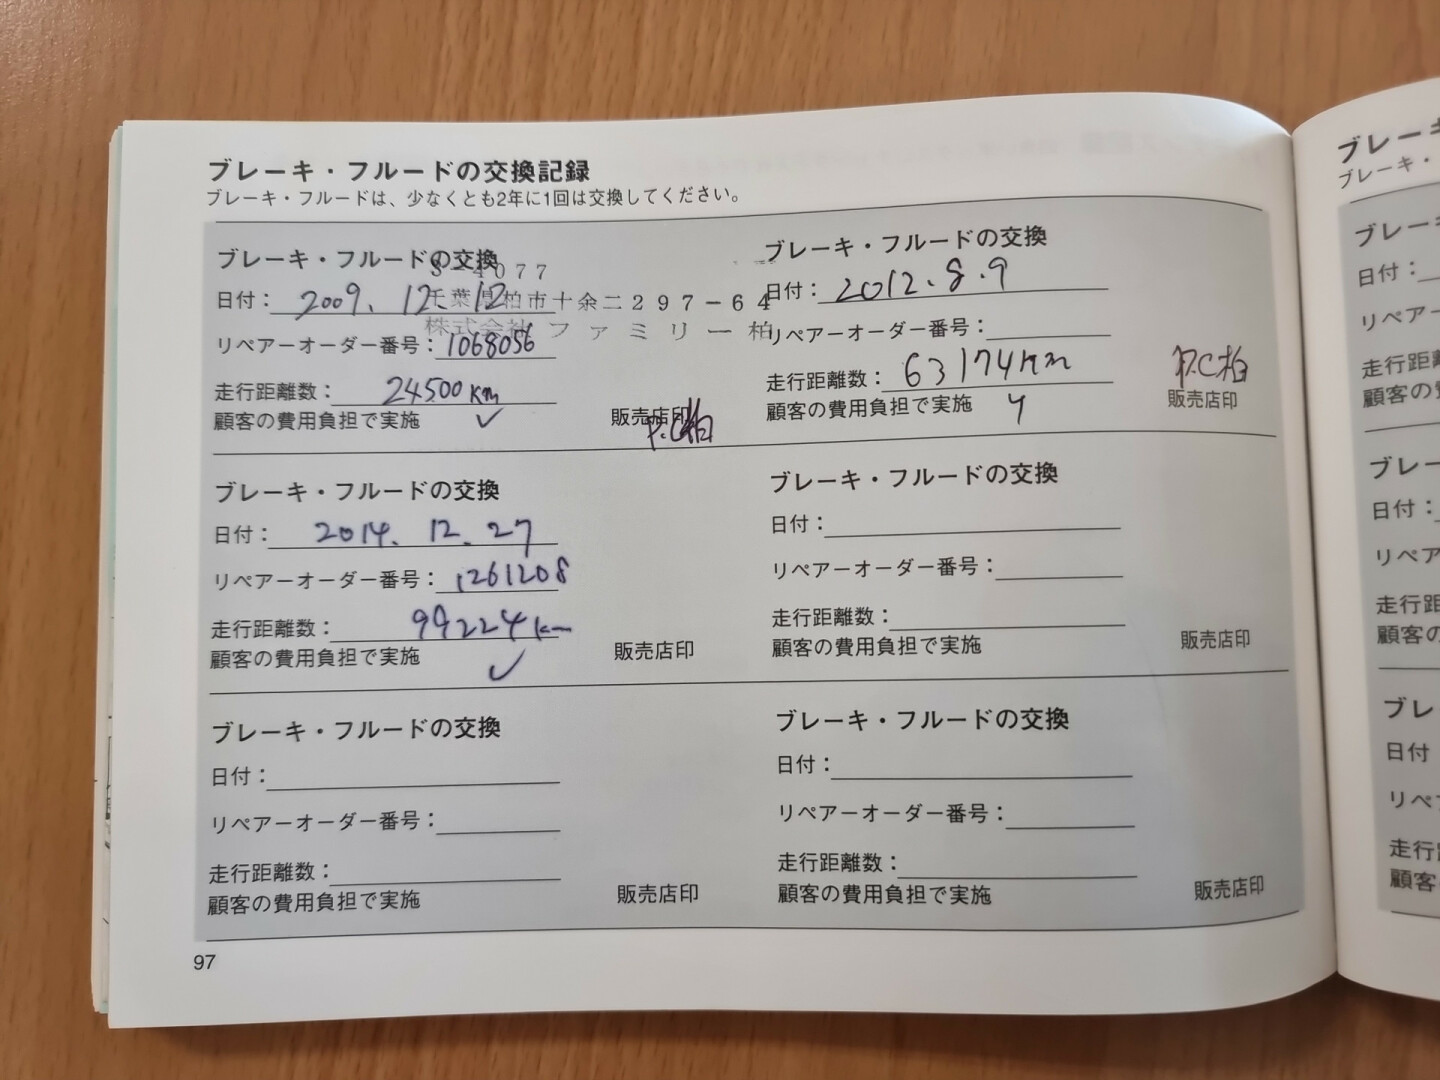 ブレーキ・フルードの交換記録
ブレーキ・フルードは、少なくとも2年に1回は交換してください。
ブレーキ・フルードの交換
S-4077
日付：2009. 12. 12
千葉県柏市十余二297-64
株式会社ファミリー柏
リペアーオーダー番号：1068056
走行距離数：24500km
顧客の費用負担で実施 ✓
販売店印
P.C柏
ブレーキ・フルードの交換
日付：2012.8.9
リペアーオーダー番号：
走行距離数：63174km
顧客の費用負担で実施
P.C柏
販売店印
ブレーキ・フルードの交換
日付：2014. 12. 27
リペアーオーダー番号：1261208
走行距離数：99224km
顧客の費用負担で実施 ✓
販売店印
ブレーキ・フルードの交換
日付：
リペアーオーダー番号：
走行距離数：
顧客の費用負担で実施
販売店印
ブレーキ・フルードの交換
日付：
リペアーオーダー番号：
走行距離数：
顧客の費用負担で実施
販売店印
ブレーキ・フルードの交換
日付：
リペアーオーダー番号：
走行距離数：
顧客の費用負担で実施
販売店印
97
ブレーキ
ブレーキ・
ブレー
日付：
リペアー
走行距
顧客の
ブレー
日付：
リペア
走行距
顧客の
ブレ
日付
リペ
走行
顧客